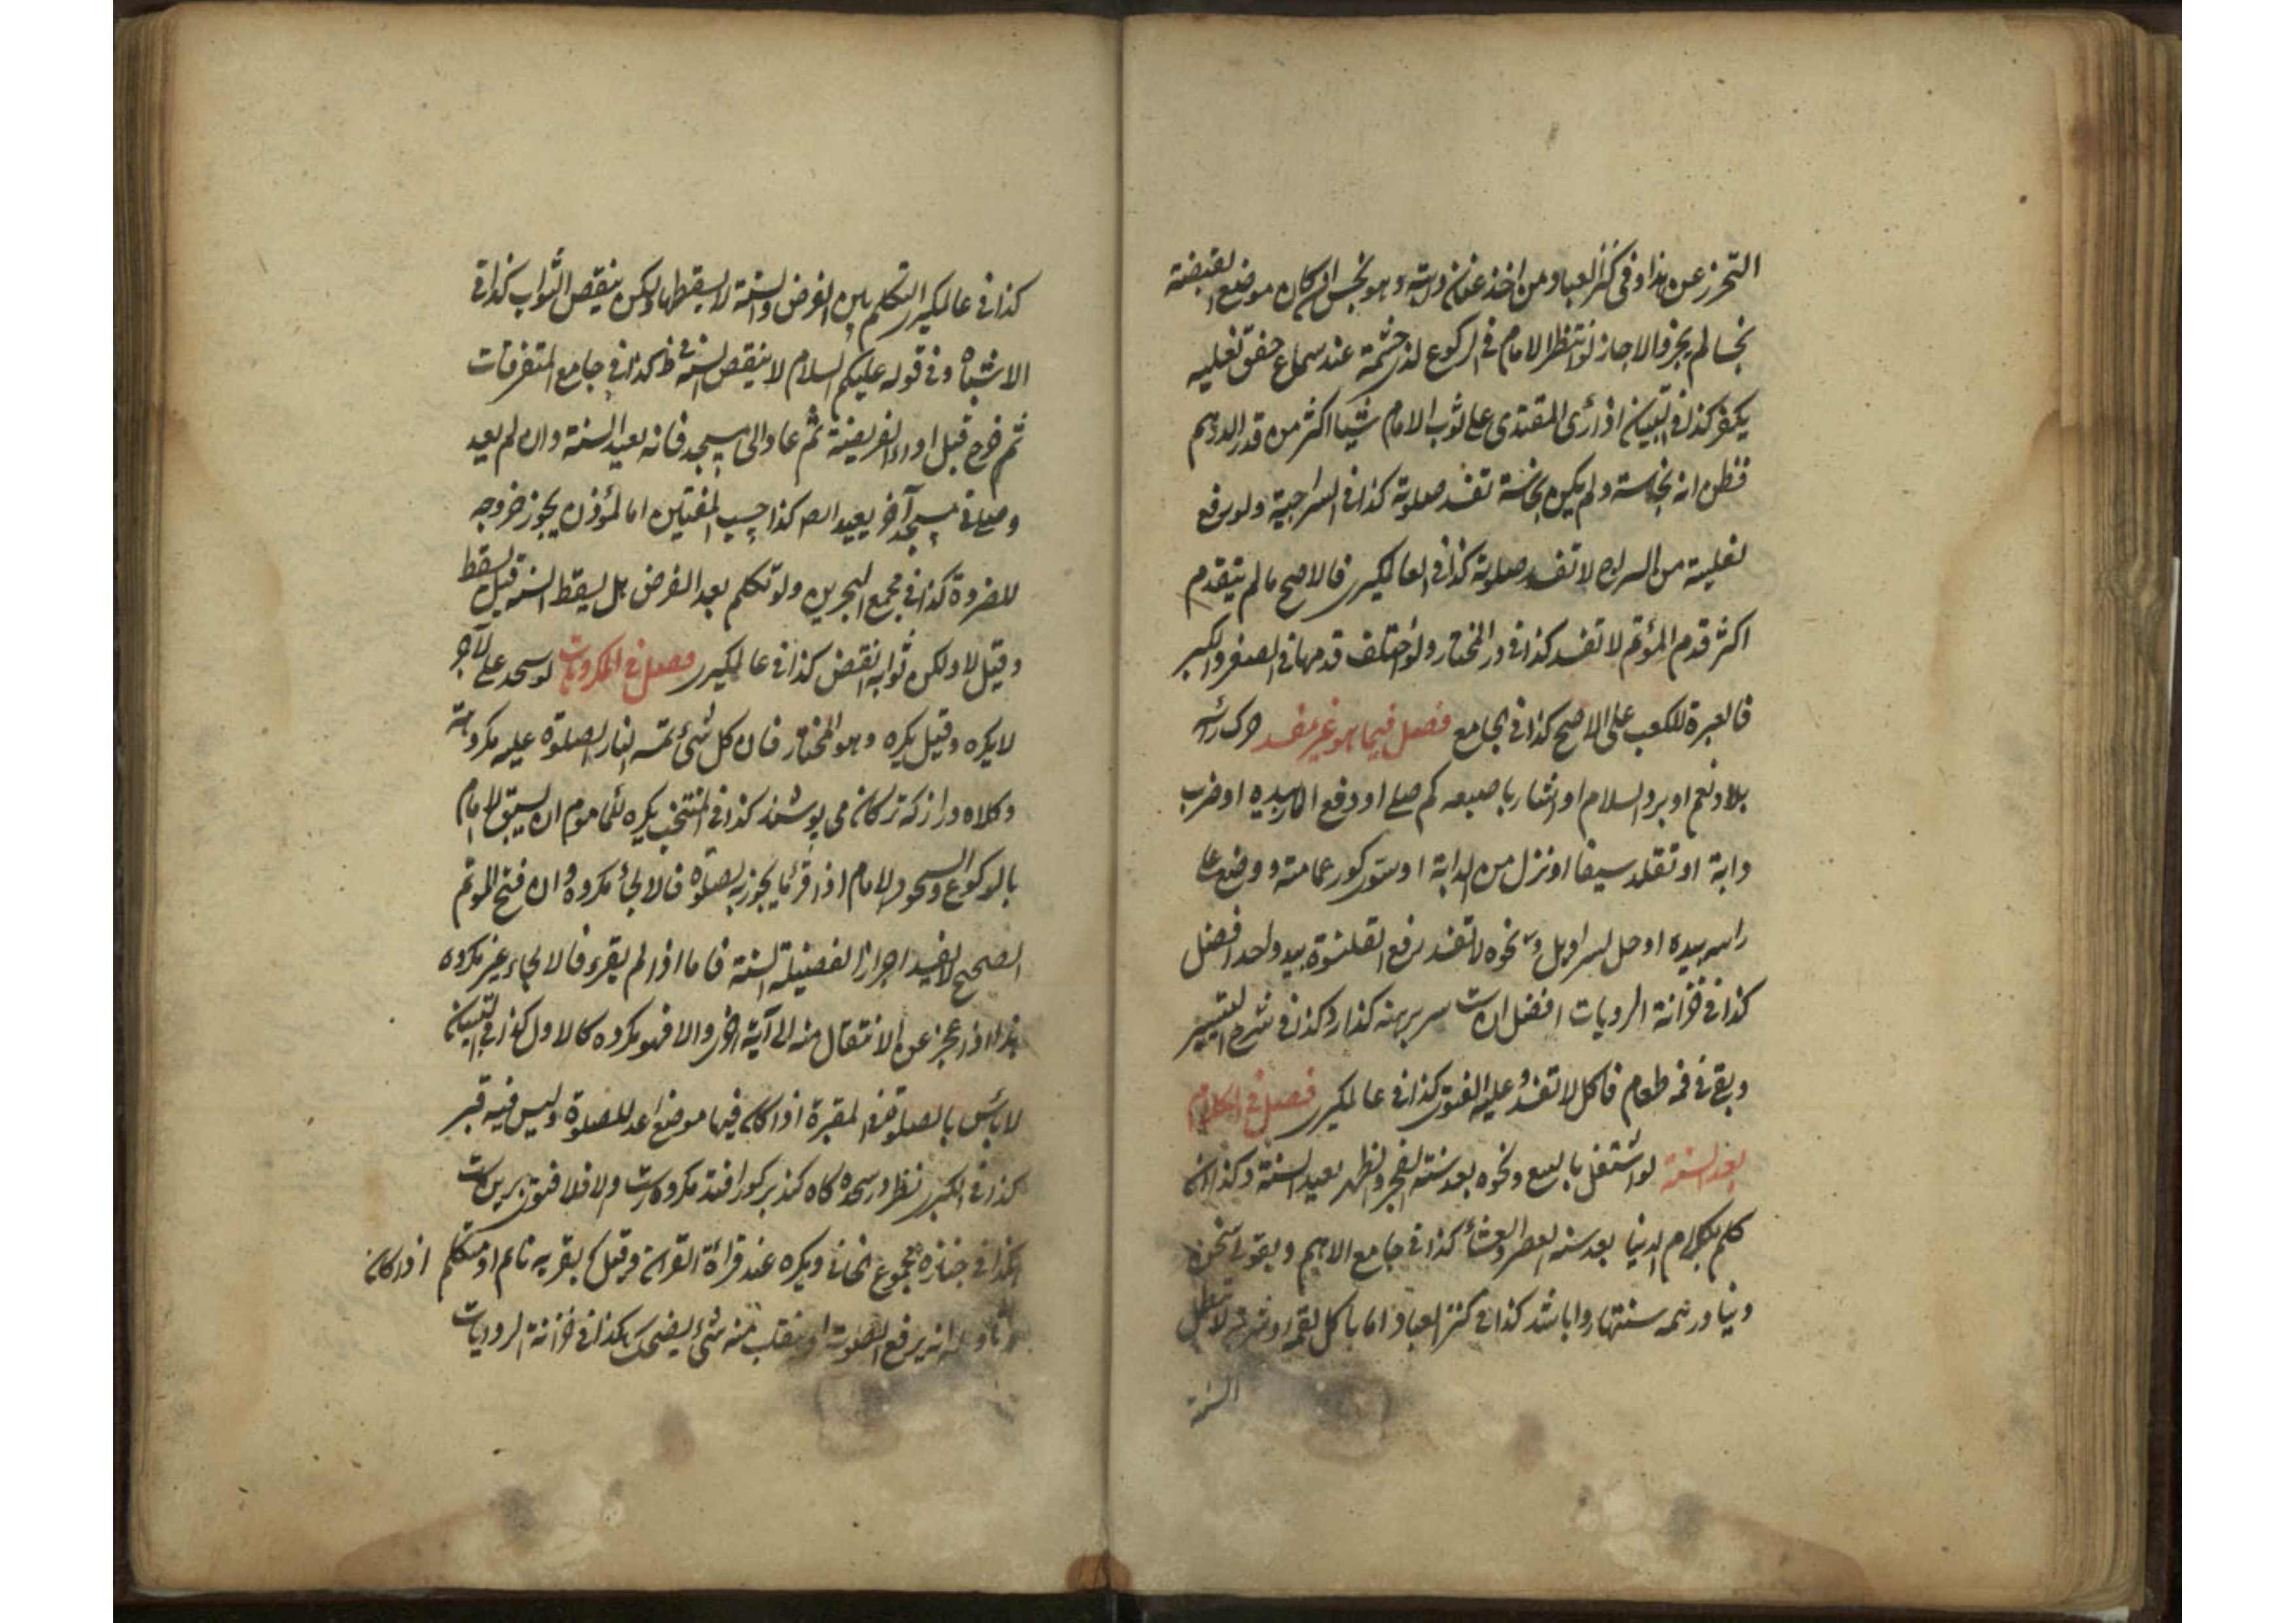 التحرز عن هذا وفى كنز العباد ومن اخذ عنان دابته وهو نجس ان كان موضع القبضة
نجسا لم يجز والا جاز لو انتظر الامام فى الركوع لذى حشمة عند سماع خفق نعليه
يكفر كذا فى التبيان اذا رئى المقتدى على ثوب الامام شيئا اكثر من قدر الدرهم
فظن انه نجاسة ولم يكن نجاسة تفسد صلوته كذا فى السراجية ولو رفع
نعليه من السراج لا تفسد صلوته كذا فى العالمكيرى فالاصح ما لم يتقدم
اكثر قدم المؤتم لا تفسد كذا فى در المختار ولو اختلف قدمهما فى الصغر والكبر
فالعبرة للكعب على الاصح كذا فى الجامع فصل فيما هو غير مفسد حرك رأسه
بلا ونعم او برد السلام او اشار باصبعه كم صلى او دفع المار بيده او ضرب
دابة او تقلد سيفا او نزل من الدابة او سوى كور عمامته ووضع على
راسه بيده او حل السراويل ونحوه لا تفسد رفع القلنسوة بيد واحد افضل
كذا فى خزانة الروايات افضل ان است سر برهنه كذارد كذا فى شرح التيسير
وبقى فى فمه طعام فاكل لا تفسد وعليه الفتوى كذا فى عالمكيرى فصل فى الكلام
بعد السنة لو اشتغل بالبيع ونحوه بعد سنة الفجر والظهر يعيد السنة وكذا ان
كلم بكلام الدنيا بعد سنه العصر والعشاء كذا فى جامع الاهم وبقولى سخن
دنيا در همه سنتها روا باشد كذا فى كنز العباد اما باكل لقمة او شربة لا تبطل
السنة
كذا فى عالمكيرى التكلم بين الفرض والسنة لا يسقطها ولكن ينقص الثواب كذا فى
الاشباه وفى قوله عليكم السلام لا ينقص السنة كذا فى جامع المتفرقات
ثم خرج قبل اداء الفريضة ثم عاد الى مسجد فانه يعيد السنة وان لم يعد
وصلى فى مسجد آخر يعيد الصـ كذا حسب المفتيين اما المؤذن يجوز خروجه
للضروة كذا فى مجمع البحرين ولو تكلم بعد الفرض بل يسقط السنه قيل يسقط
وقيل لا ولكن ثوابه انقص كذا فى عالمكيرى فصل فى المكروهات لو سجد على الآجر
لا يكره وقيل يكره وهو المختار فان كل شئ تمسه النار الصلوة عليه مكروهة
وكلاه دراز كه تركان مى پوشند كذا فى المنتخب يكره للماموم ان يسبق الامام
بالركوع والسجود الامام اذا قرئ ما يجوز به الصلوة فالالجاء مكروه وان فتح المؤتم
الصحيح لا يفيد احراز الفضيلة السنة فاما اذا لم يقرء فالالجاء غير مكروه
هذا اذا عجز عن الانتقال منه الى آية اخرى والا فهو مكروه كالاول كذا فى التبيان
لا بأس بالصلوة فى المقبرة اذا كان فيها موضع اعد للصلوة وليس فيه قبر
كذا فى الكبرى نظر در سجده كاه كند بر كور افتد مكروه است والا فلا فتوى برين است
هكذا فى جنازة مجموع الخانى ويكره عند قراءة القرآن وقيل بقربه نائم او متكلم اذا كان
وتاويله انه يرفع الصوت او ينقلب منه شئ يضحك هكذا فى خزانة الروايات